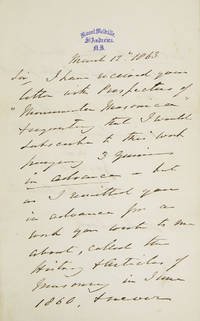 Mount Melville,
St Andrews,
N.B.
March 12th 1863
Sir, I have received your
letter with Prospectus of
"Monumenta Masonica"
requesting that I would
Subscribe to this work
paying 3 Guineas
in advance – but
as I remitted you
in advance for a
work you wrote to me
about, called the
History & Articles of
Masonry in June
1860, & never